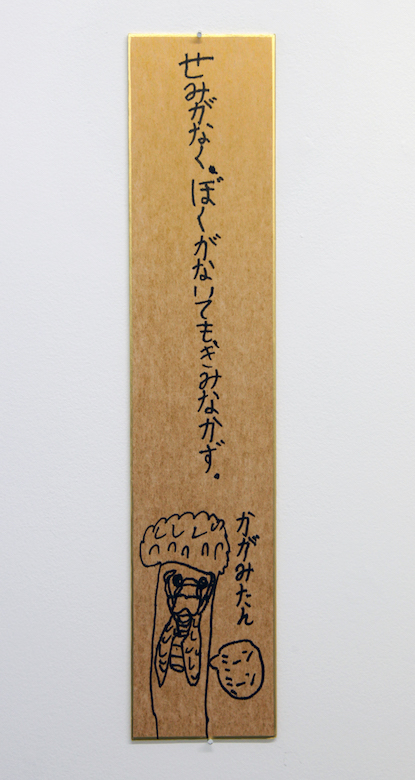 せみがなく。ぼくがないてもきみなかず。
かがみたん
ミーン
ミーン